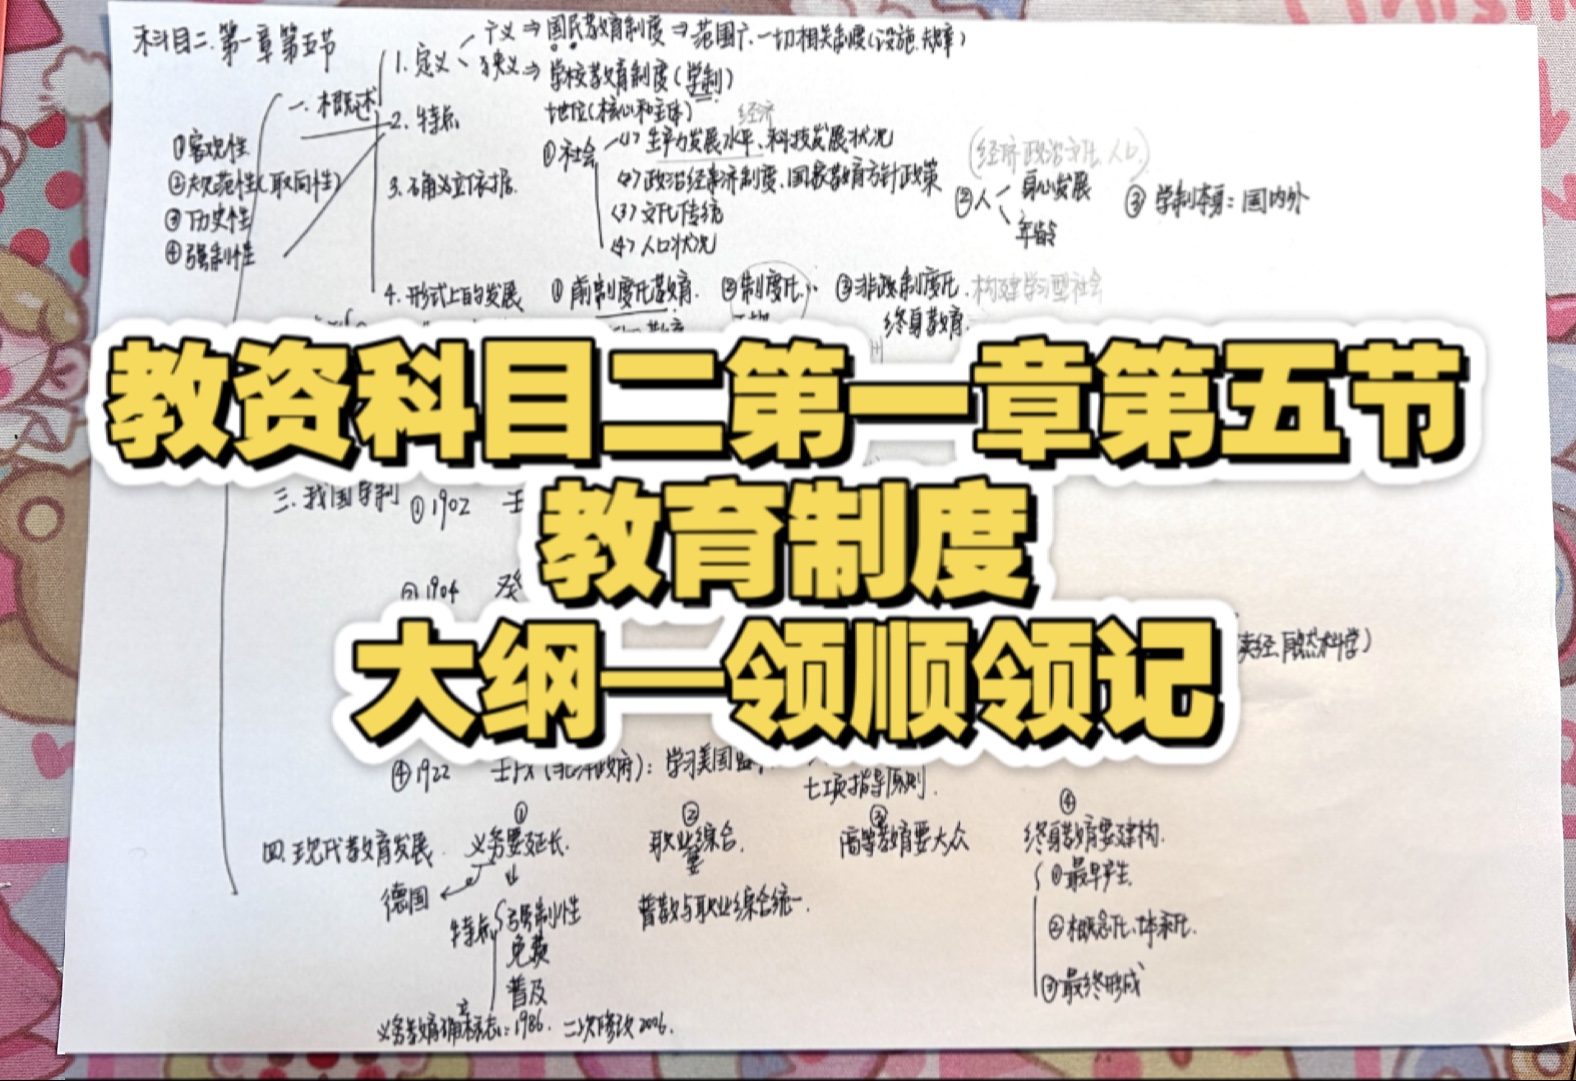 科目二.第一章第五节
广义⇒国民教育制度⇒范围广.一切相关制度(设施.规章)
1.定义
狭义⇒学校教育制度(学制)
一.概述
地位(核心和主体)
经济
2.特点
①社会
(1)生产力发展水平、科技发展状况
(经济政治文化、人口.)
①客观性
②规范性(取向性)
③历史性
④强制性
3.确立依据.
(2)政治经济制度、国家教育方针政策
(3)文化传统
(4)人口状况
②人
身心发展
年龄
③学制本身:国内外
4.形式上的发展
①前制度化教育.
②制度化..
③非制度化.构建学习型社会
终身教育.
教资科目二第一章第五节
教育制度
大纲—领顺领记
三.我国学制
①1902
②1904
读经、自然科学)
④1922
(北洋政府):学习美国
七项指导原则.
四.现代教育发展
①
义务要延长.
②
职业要综合.
③
高等教育要大众
④
终身教育要建构.
德国
特点
强制性
免费
普及
普教与职业综合统一.
①最早产生.
②概念化、体系化.
③最终形成
义务教育确立标志:1986.二次修改2006.